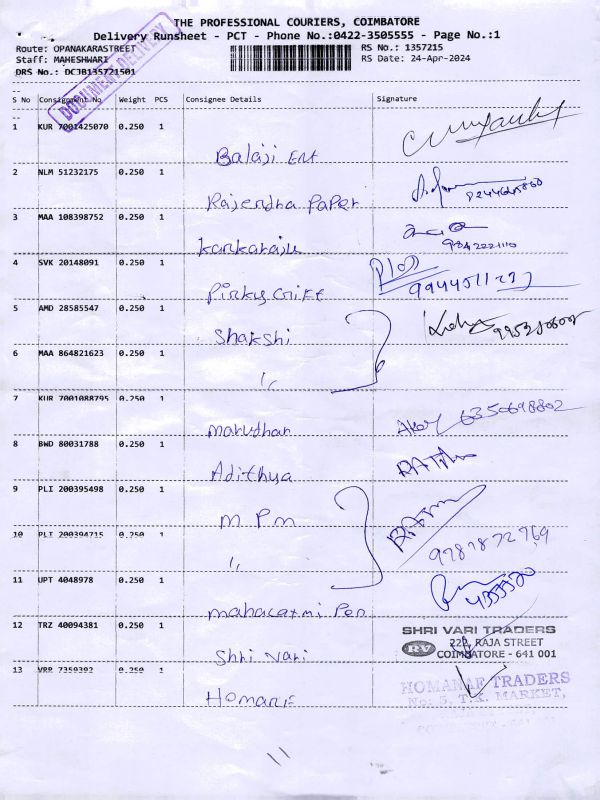 THE PROFESSIONAL COURIERS, COIMBATORE
Delivery Runsheet - PCT - Phone No.:0422-3505555 - Page No.:1
Route: OPANAKARASTREET
RS No.: 1357215
Staff: MAHESHWARI
RS Date: 24-Apr-2024
DRS No.: DCJB135721501
DOCUMENT DELIVERY
S No Consignment No Weight PCS Consignee Details Signature
1 KUR 7001425070 0.250 1
Balaji Ent
2 NLM 51232175 0.250 1
Rajendra Paper
3 MAA 108398752 0.250 1
kankaraju
9842221110
4 SVK 20148091 0.250 1
Pinky Gift
5 AMD 28585547 0.250 1
Shakshi
6 MAA 864821623 0.250 1
"
7 KUR 7001088795 0.250 1
marudhar
6350698802
8 BWD 80031788 0.250 1
Adithya
9 PLI 200395498 0.250 1
M P M
10 PLI 200394715 0.250 1
"
9787872769
11 UPT 4048978 0.250 1
mahalaxmi Pen
12 TRZ 40094381 0.250 1
Shri Vari
SHRI VARI TRADERS
RV
RAJA STREET
COIMBATORE - 641 001
13 VRP 7359392 0.250 1
TRADERS
T.K. MARKET,
11